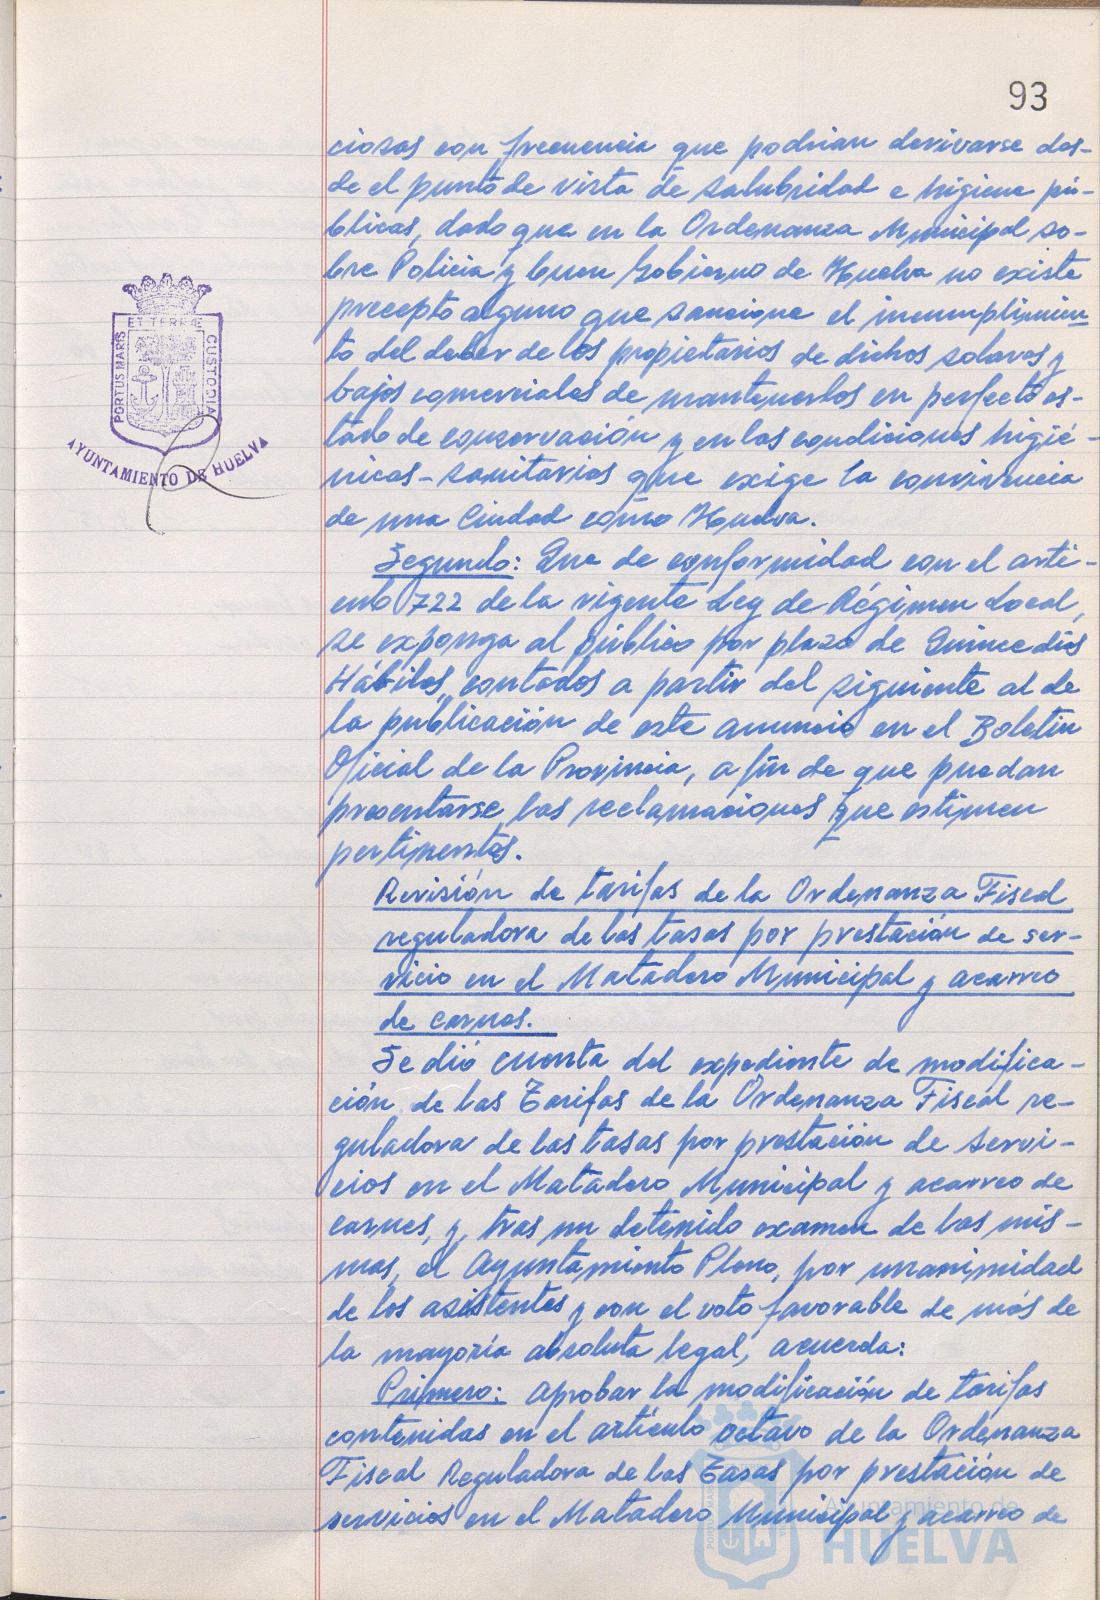 93
ciosas con frecuencia que podrian derivarse des-
de el punto de vista de salubridad e higiene pú-
blicas, dado que en la Ordenanza Municipal so-
bre Policia y buen Gobierno de Huelva no existe
precepto alguno que sancione el incumplimien-
to del deber de los propietarios de dichos solares y
bajos comerciales de mantenerlos en perfecto es-
tado de conservación y en las condiciones higié-
nicas-sanitarias que exige la convivencia
de una Ciudad como Huelva.
ET TERRÆ
PORTUS MARIS
CUSTODIA
AYUNTAMIENTO DE HUELVA
Segundo: Que de conformidad con el arti-
culo 722 de la vigente Ley de Régimen Local,
se exponga al público por plazo de Quince días
Hábiles, contados a partir del siguiente al de
la publicación de este anuncio en el Boletin
Oficial de la Provincia, a fin de que puedan
presentarse las reclamaciones que estimen
pertinentes.
Revisión de tarifas de la Ordenanza Fiscal
reguladora de las tasas por prestación de ser-
vicio en el Matadero Municipal y acarreo
de carnes.
Se dió cuenta del expediente de modifica-
ción de las Tarifas de la Ordenanza Fiscal re-
guladora de las tasas por prestación de servi-
cios en el Matadero Municipal y acarreo de
carnes, y, tras un detenido examen de las mis-
mas, el Ayuntamiento Pleno, por unanimidad
de los asistentes y con el voto favorable de más de
la mayoría absoluta legal, acuerda:
Primero: Aprobar la modificación de tarifas
contenidas en el artículo octavo de la Ordenanza
Fiscal Reguladora de las Tasas por prestación de
servicios en el Matadero Municipal y acarreo de
Ayuntamiento de
HUELVA